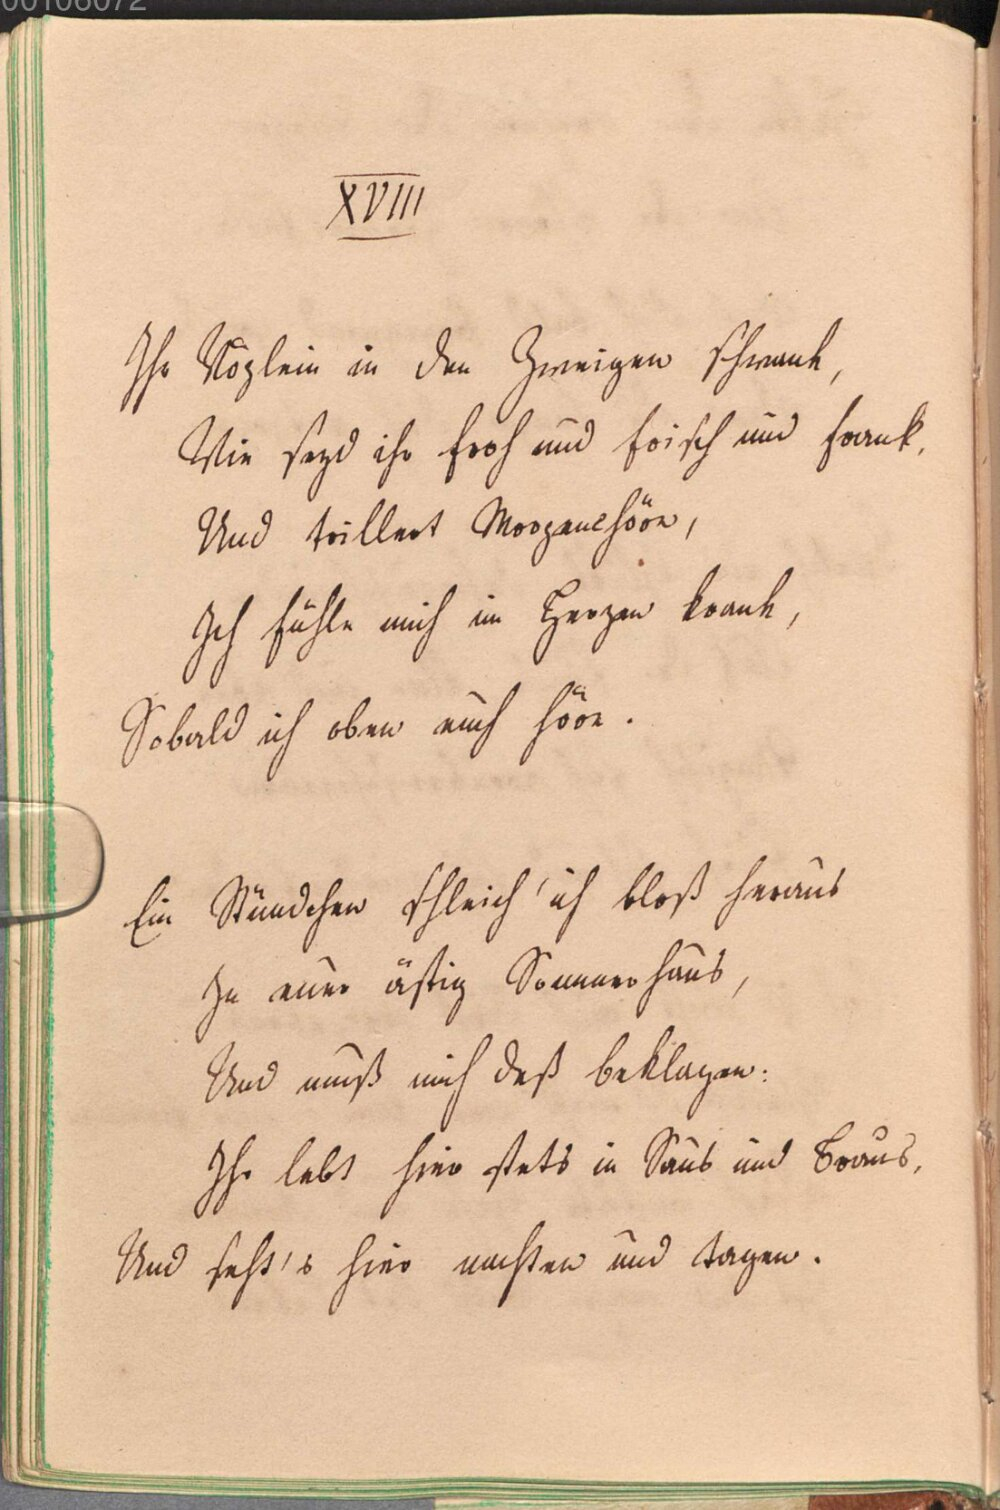 00106072
XVIII
Ihr Vöglein in den Zweigen schwank,
Wie seyd ihr froh und frisch und frank,
Und trillert Morgenchöre,
Ich fühle mich im Herzen krank,
Sobald ich oben euch höre.
Ein Stündchen schleich' ich bloß heraus
In euer ästig Sommerhaus,
Und muß mich deß beklagen:
Ihr lebt hier stets in Saus und Braus,
Und seht's hier nachten und tagen.